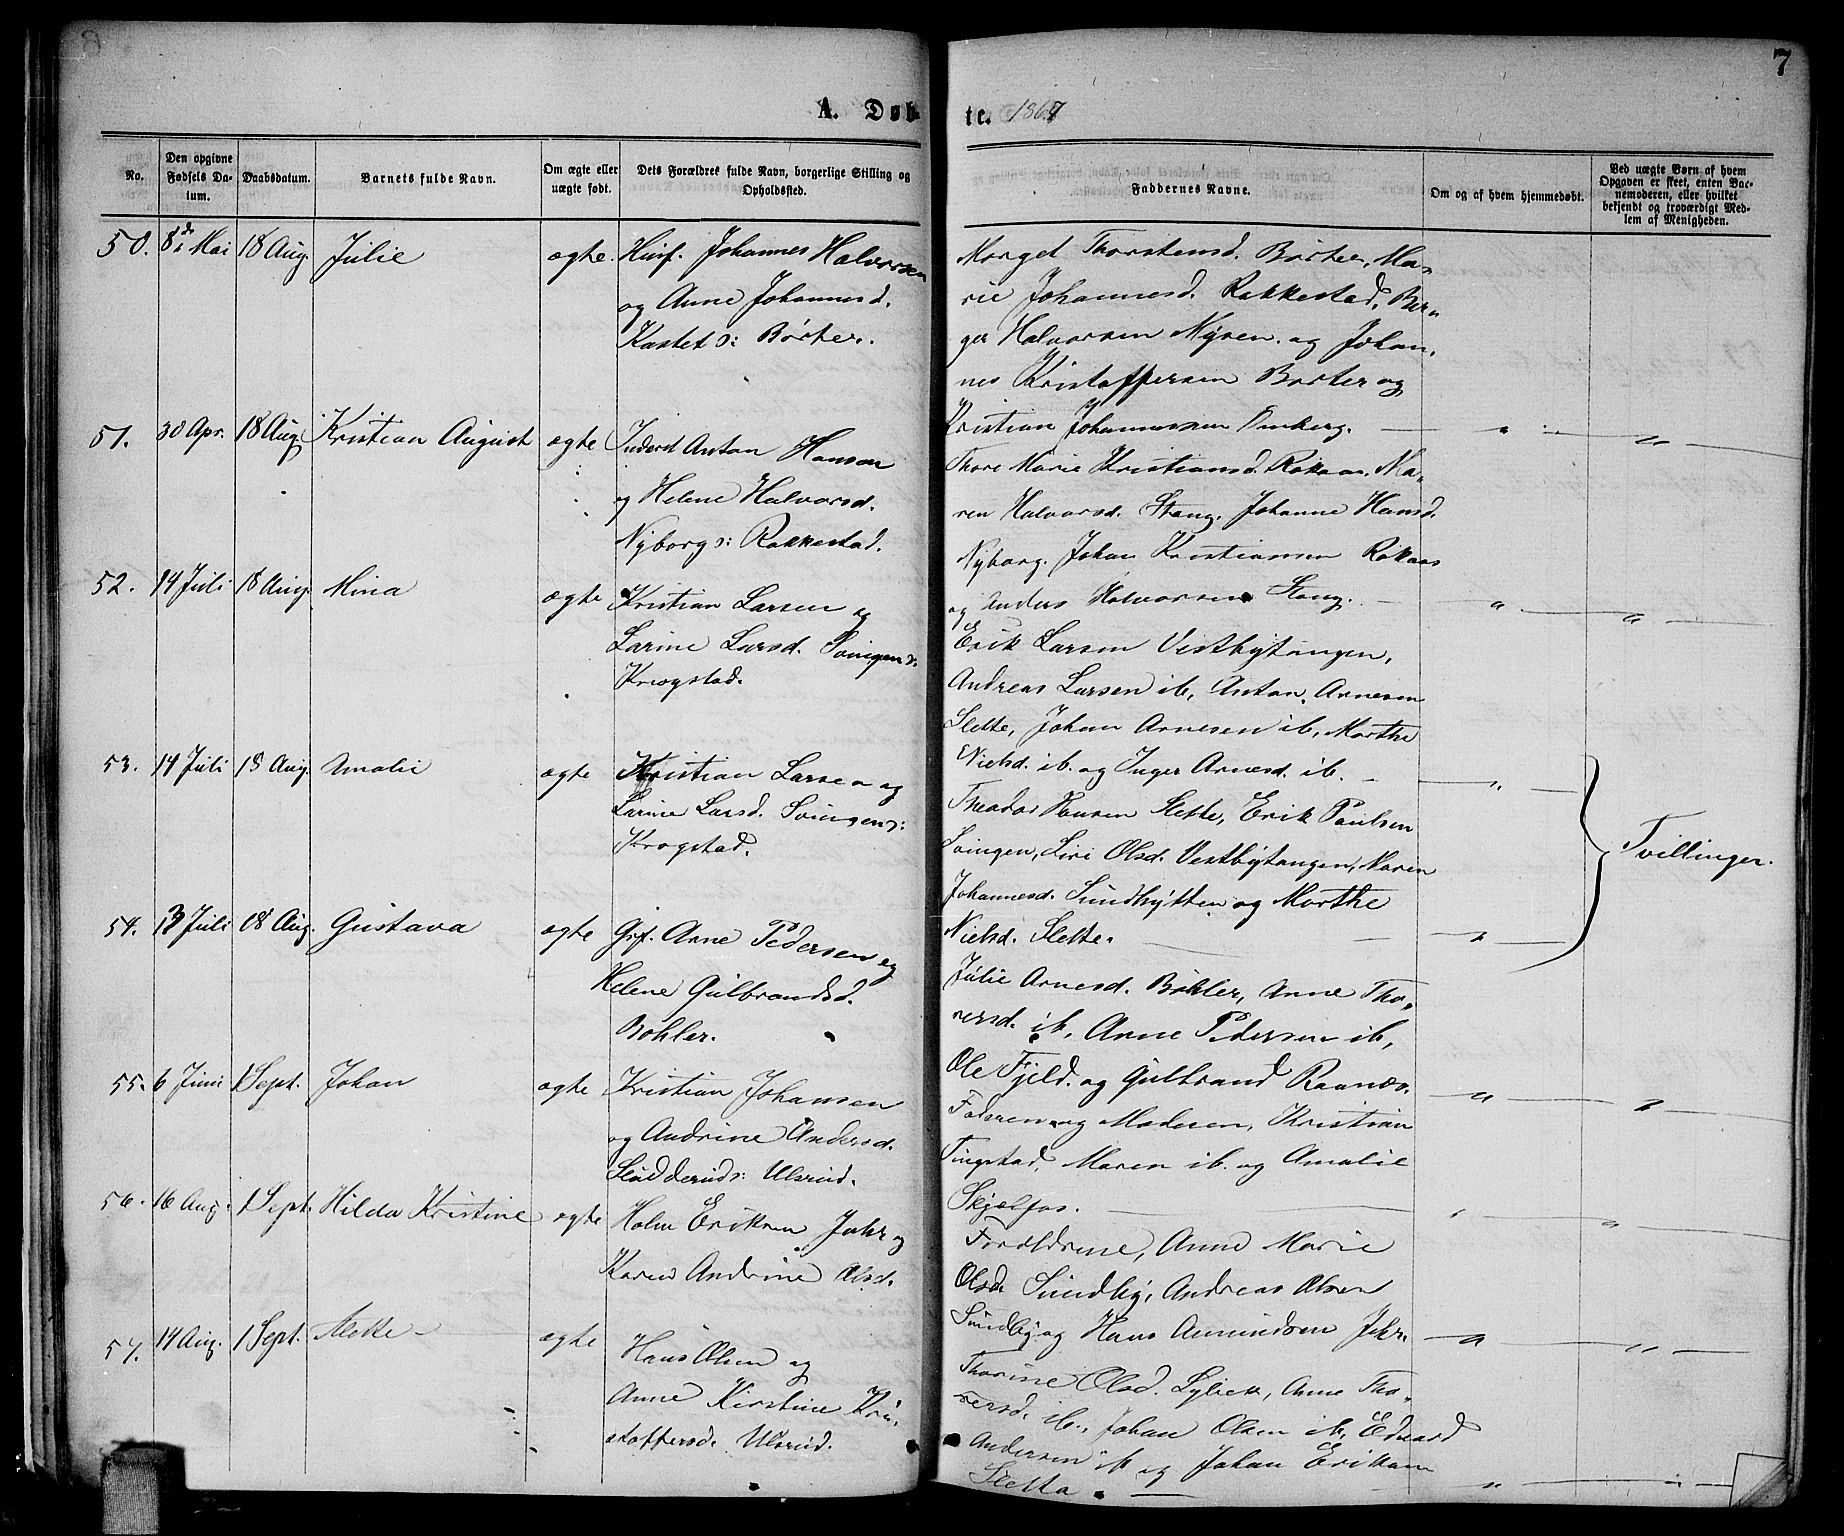 7
A. Døb-
te. 1867
No.
Den opgivne Fødsels Datum.
Daabsdatum.
Barnets fulde Navn.
Om ægte eller uægte født.
Dets Forældres fulde Navn, borgerlige Stilling og Opholdssted.
Faddernes Navne.
Om og af hvem hjemmedøbt.
Ved uægte Børn af hvem Opgaven er skeet, enten Barnemoderen, eller hvilket bekjendt og troværdigt Medlem af Menigheden.
50. 8de Mai 18 Aug. Julie ægte. Husf. Johannes Halvorsen
og Anne Johannesd.
Kastet s: Børter.
Marget Thorstensd. Børter, Ma-
rie Johannesd. Rakkestad, Bir-
ger Halvorsen Mysen. og Johan-
nes Kristoffersen Børter og
Kristian Johannessen
51. 30 Apr. 18 Aug. Kristian August ægte Inderst Anton Hansen
og Helene Halvorsd.
Nyborg s: Rakkestad.
Thore Marie Kristiansd. Rakaas, Ma-
ren Halvorsd. Stang, Johanne Hansd.
Nyborg, Johan Kristiansen Rakaas
og Anders Halvorsen Stang.
52. 14 Juli 18 Aug. Mina ægte Kristian Larsen og
Larine Larsd. Svingen s:
Krogstad.
Erik Larsen Vestbytangen,
Andreas Larsen ib, Anton Arnesen
Slette, Johan Arnesen ib, Marthe
Nielsd. ib. og Inger Arnesd. ib.
53. 14 Juli 18 Aug. Amalie ægte Kristian Larsen og
Larine Larsd. Svingen s:
Krogstad.
Theodor Hansen Slette, Erik Paulsen
Svingen, Siri Olsd. Vestbytangen, Maren
Johannesd. Sundbytten og Marthe
Nielsd. Slette.
Tvillinger.
54. 13 Juli 18 Aug. Gustava ægte Grf. Arne Pedersen og
Helene Gulbrandsd.
Bøhler.
Julie Arnesd. Bøhler, Anne Tho-
rersd. ib, Arne Pedersen ib,
Ole Fjeld. og Gulbrand Raanæs.
55. 6 Juni 1 Sept. Johan ægte Kristian Johansen
og Andrine Andersd.
Sludderud s: Ulsrud.
Faderen og Moderen, Kristian
Tingstad, Maren ib. og Amalie
Skjælfos.
56. 16 Aug. 1 Sept. Hilda Kristine ægte Holm Eriksen Jahr og
Karen Andrine Olsd.
Forældrene, Anne Marie
Olsd. Sundby, Andreas Olsen
Sundby og Hans Amundsen Jahr.
57. 14 Aug. 1 Sept. ægte Hans Olsen og
Anne Kirstine Kri-
stoffersd. Ulsrud.
Thorine Olsd. Anne Tho-
rersd. ib., Johan Olsen ib, Edvard
Andersen ib og Johan Eriksen
Sletta